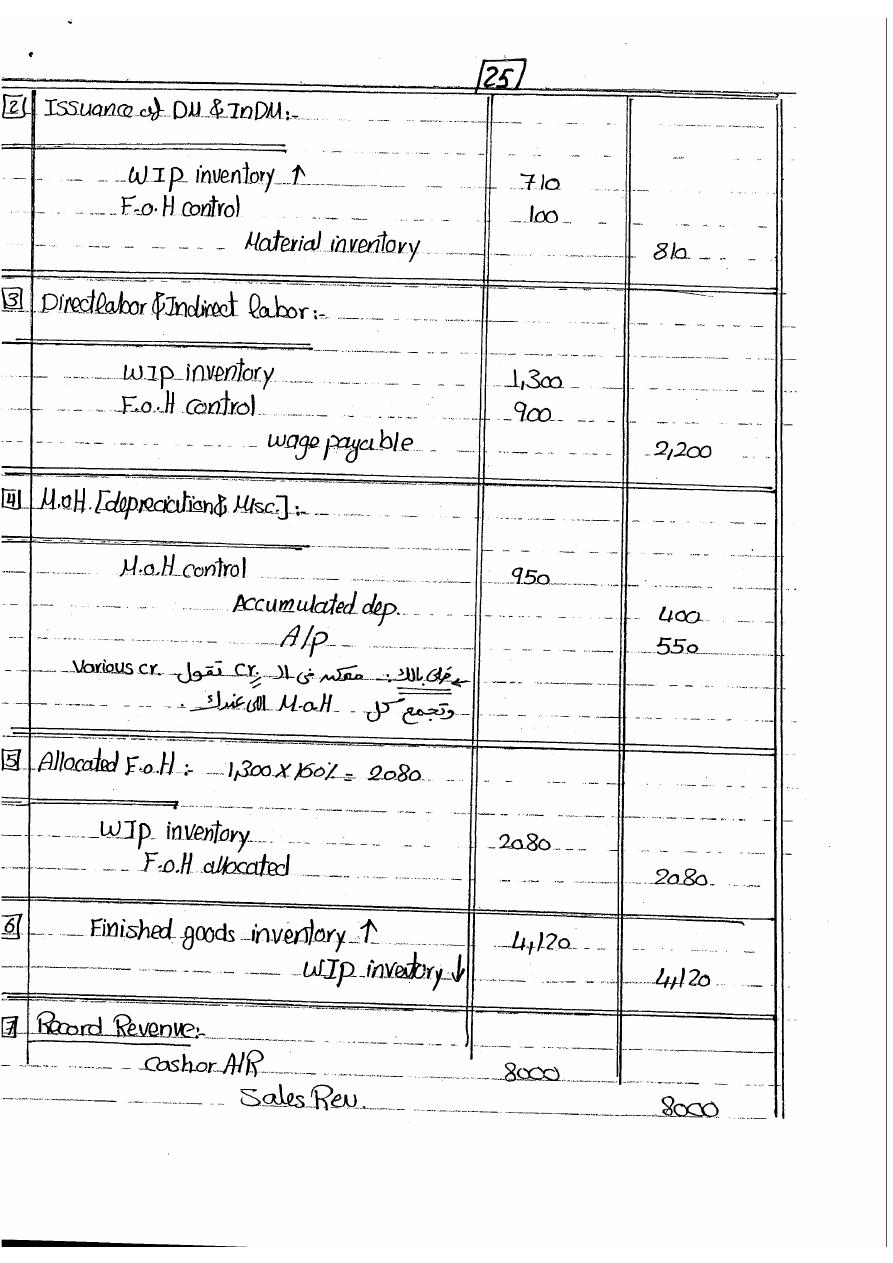 25
2 Issuance of DM & InDM:-
WIP inventory ↑ 710
F.O.H control 100
Material inventory 810
3 Direct labor & Indirect labor:-
WIP inventory 1,300
F.O.H control 900
wage payable 2,200
4 M.OH. [depreciation & Misc.]:-
M.O.H control 950
Accumulated dep. 400
A/p 550
← خلى بالك: ممكن فى الـ cr. تقول Various cr.
وتجمع كل M.O.H اللى عندك.
5 Allocated F.O.H:- 1,300 X 160% = 2080
WIP inventory 2080
F.O.H allocated 2080
6 Finished goods inventory ↑ 4,120
WIP inventory ↓ 4,120
7 Record Revenue:-
Cash or A/R 8000
Sales Rev. 8000